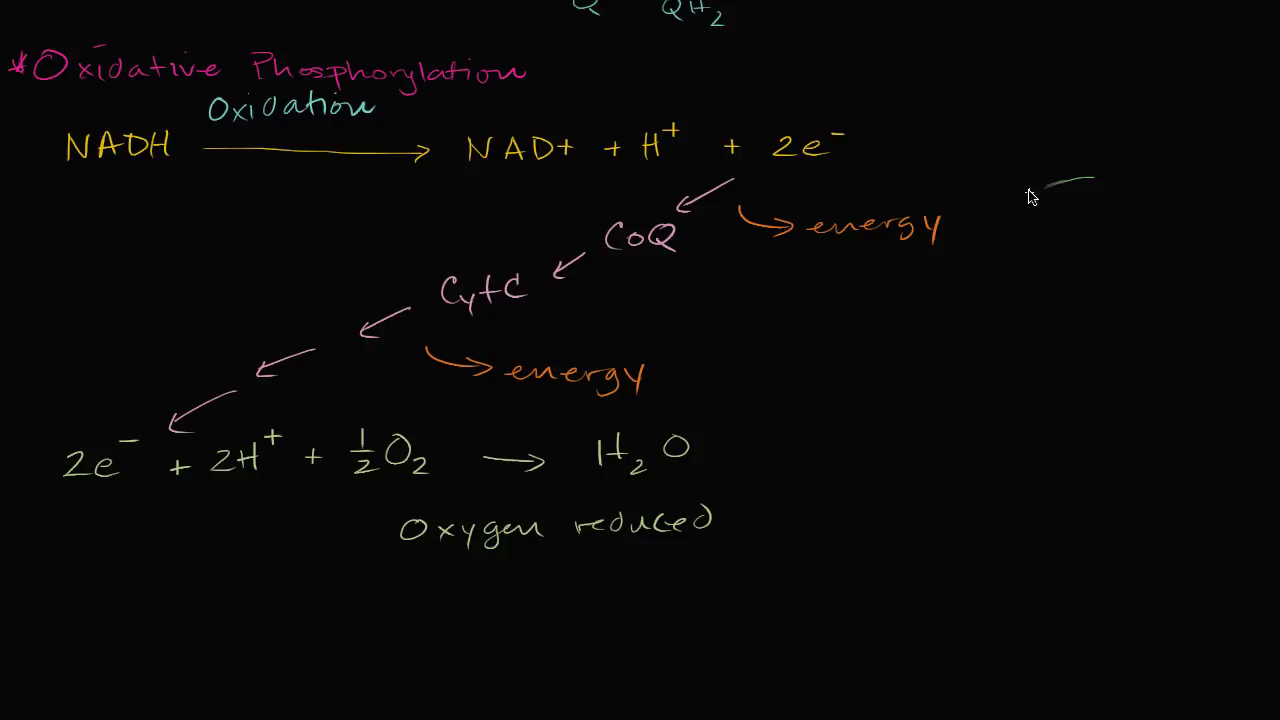 Q QH2
*Oxidative Phosphorylation
Oxidation
NADH → NAD+ + H+ + 2e-
CoQ → energy
Cyt C
→ energy
2e- + 2H+ + 1/2 O2 → H2O
Oxygen reduced